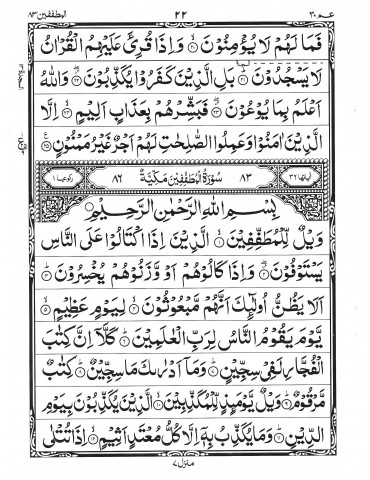 عم ٣٠ ٢٢ المطففين ٨٣
فَمَا لَهُمْ لَا يُؤْمِنُوْنَ ۙ۝٢٠ وَاِذَا قُرِئَ عَلَيْهِمُ الْقُرْاٰنُ
لَا يَسْجُدُوْنَ ۩۝٢١ بَلِ الَّذِيْنَ كَفَرُوْا يُكَذِّبُوْنَ ۖ۝٢٢ وَاللّٰهُ
اَعْلَمُ بِمَا يُوْعُوْنَ ۖ۝٢٣ فَبَشِّرْهُمْ بِعَذَابٍ اَلِيْمٍ ۙ۝٢٤ اِلَّا
الَّذِيْنَ اٰمَنُوْا وَعَمِلُوا الصّٰلِحٰتِ لَهُمْ اَجْرٌ غَيْرُ مَمْنُوْنٍ ۝٢٥
اٰیاتها ٣٦ ٨٣ سُوْرَةُ الْمُطَفِّفِيْنَ مَكِّيَّةٌ ٨٦ رکوعها ١
بِسْمِ اللّٰهِ الرَّحْمٰنِ الرَّحِيْمِ
وَيْلٌ لِّلْمُطَفِّفِيْنَ ۙ۝١ الَّذِيْنَ اِذَا اكْتَالُوْا عَلَى النَّاسِ
يَسْتَوْفُوْنَ ۖ۝٢ وَاِذَا كَالُوْهُمْ اَوْ وَّزَنُوْهُمْ يُخْسِرُوْنَ ۝٣
اَلَا يَظُنُّ اُولٰٓئِكَ اَنَّهُمْ مَّبْعُوْثُوْنَ ۙ۝٤ لِيَوْمٍ عَظِيْمٍ ۙ۝٥
يَّوْمَ يَقُوْمُ النَّاسُ لِرَبِّ الْعٰلَمِيْنَ ۝٦ كَلَّآ اِنَّ كِتٰبَ
الْفُجَّارِ لَفِيْ سِجِّيْنٍ ۝٧ وَمَآ اَدْرٰىكَ مَا سِجِّيْنٌ ۝٨ كِتٰبٌ
مَّرْقُوْمٌ ۝٩ وَيْلٌ يَّوْمَئِذٍ لِّلْمُكَذِّبِيْنَ ۙ۝١٠ الَّذِيْنَ يُكَذِّبُوْنَ بِيَوْمِ
الدِّيْنِ ۝١١ وَمَا يُكَذِّبُ بِهٖٓ اِلَّا كُلُّ مُعْتَدٍ اَثِيْمٍ ۙ۝١٢ اِذَا تُتْلٰى
منزل ٧